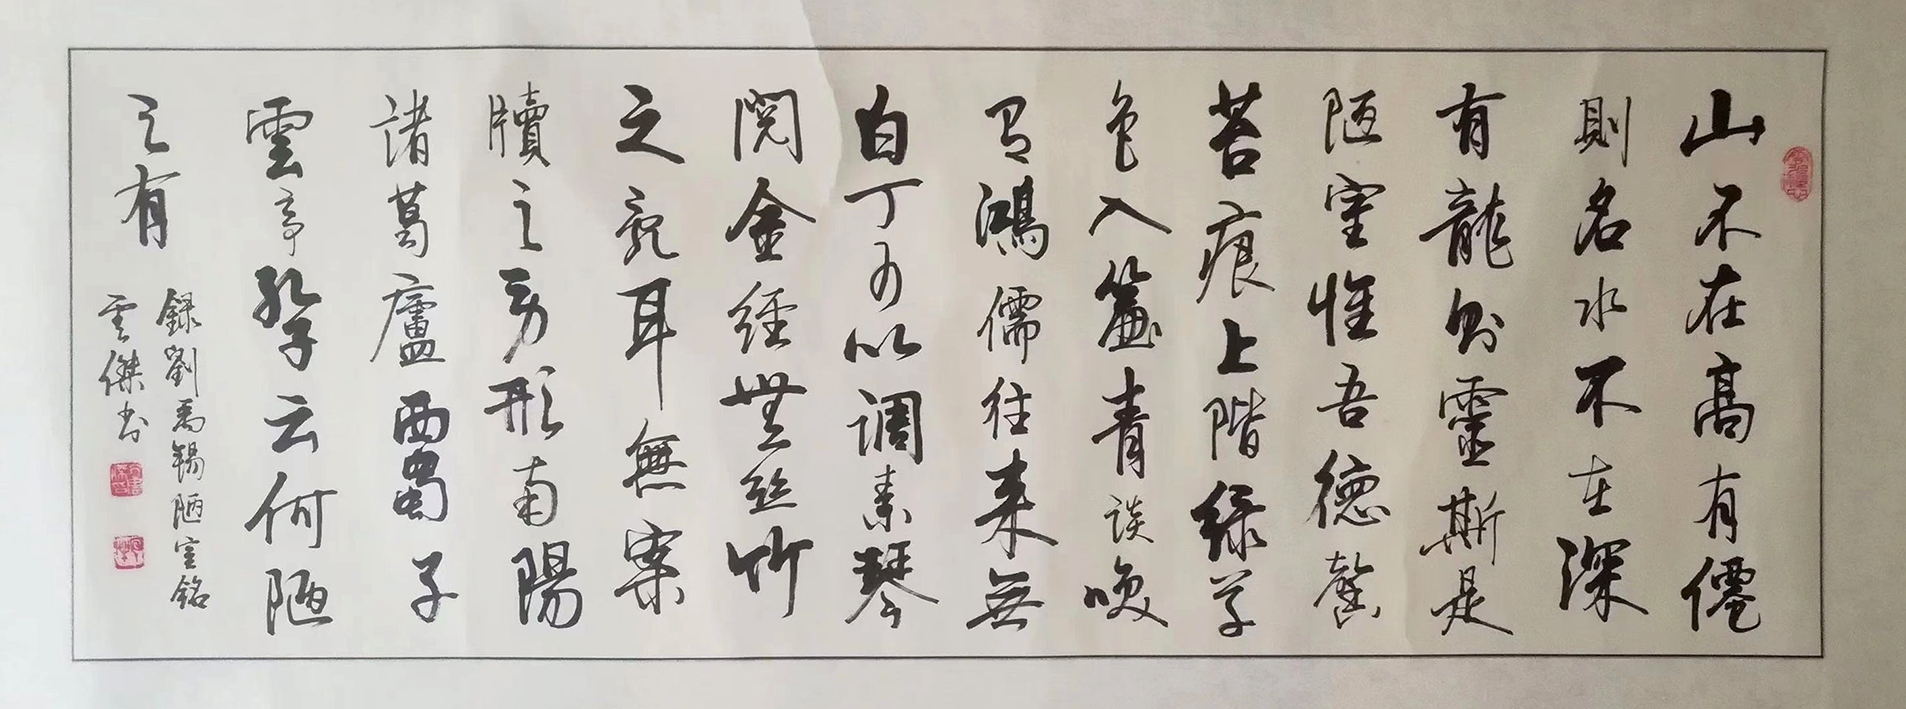 山不在髙有僊
則名水不在深
有龍則靈斯是
陋室惟吾德馨
苔痕上階緑草
色入簾青談咲
有鴻儒往来無
白丁可以調素琴
閱金經無絲竹
之亂耳無案
牘之勞形南陽
諸葛廬西蜀子
雲亭孔子云何陋
之有
録劉禹錫陋室銘
雲傑書